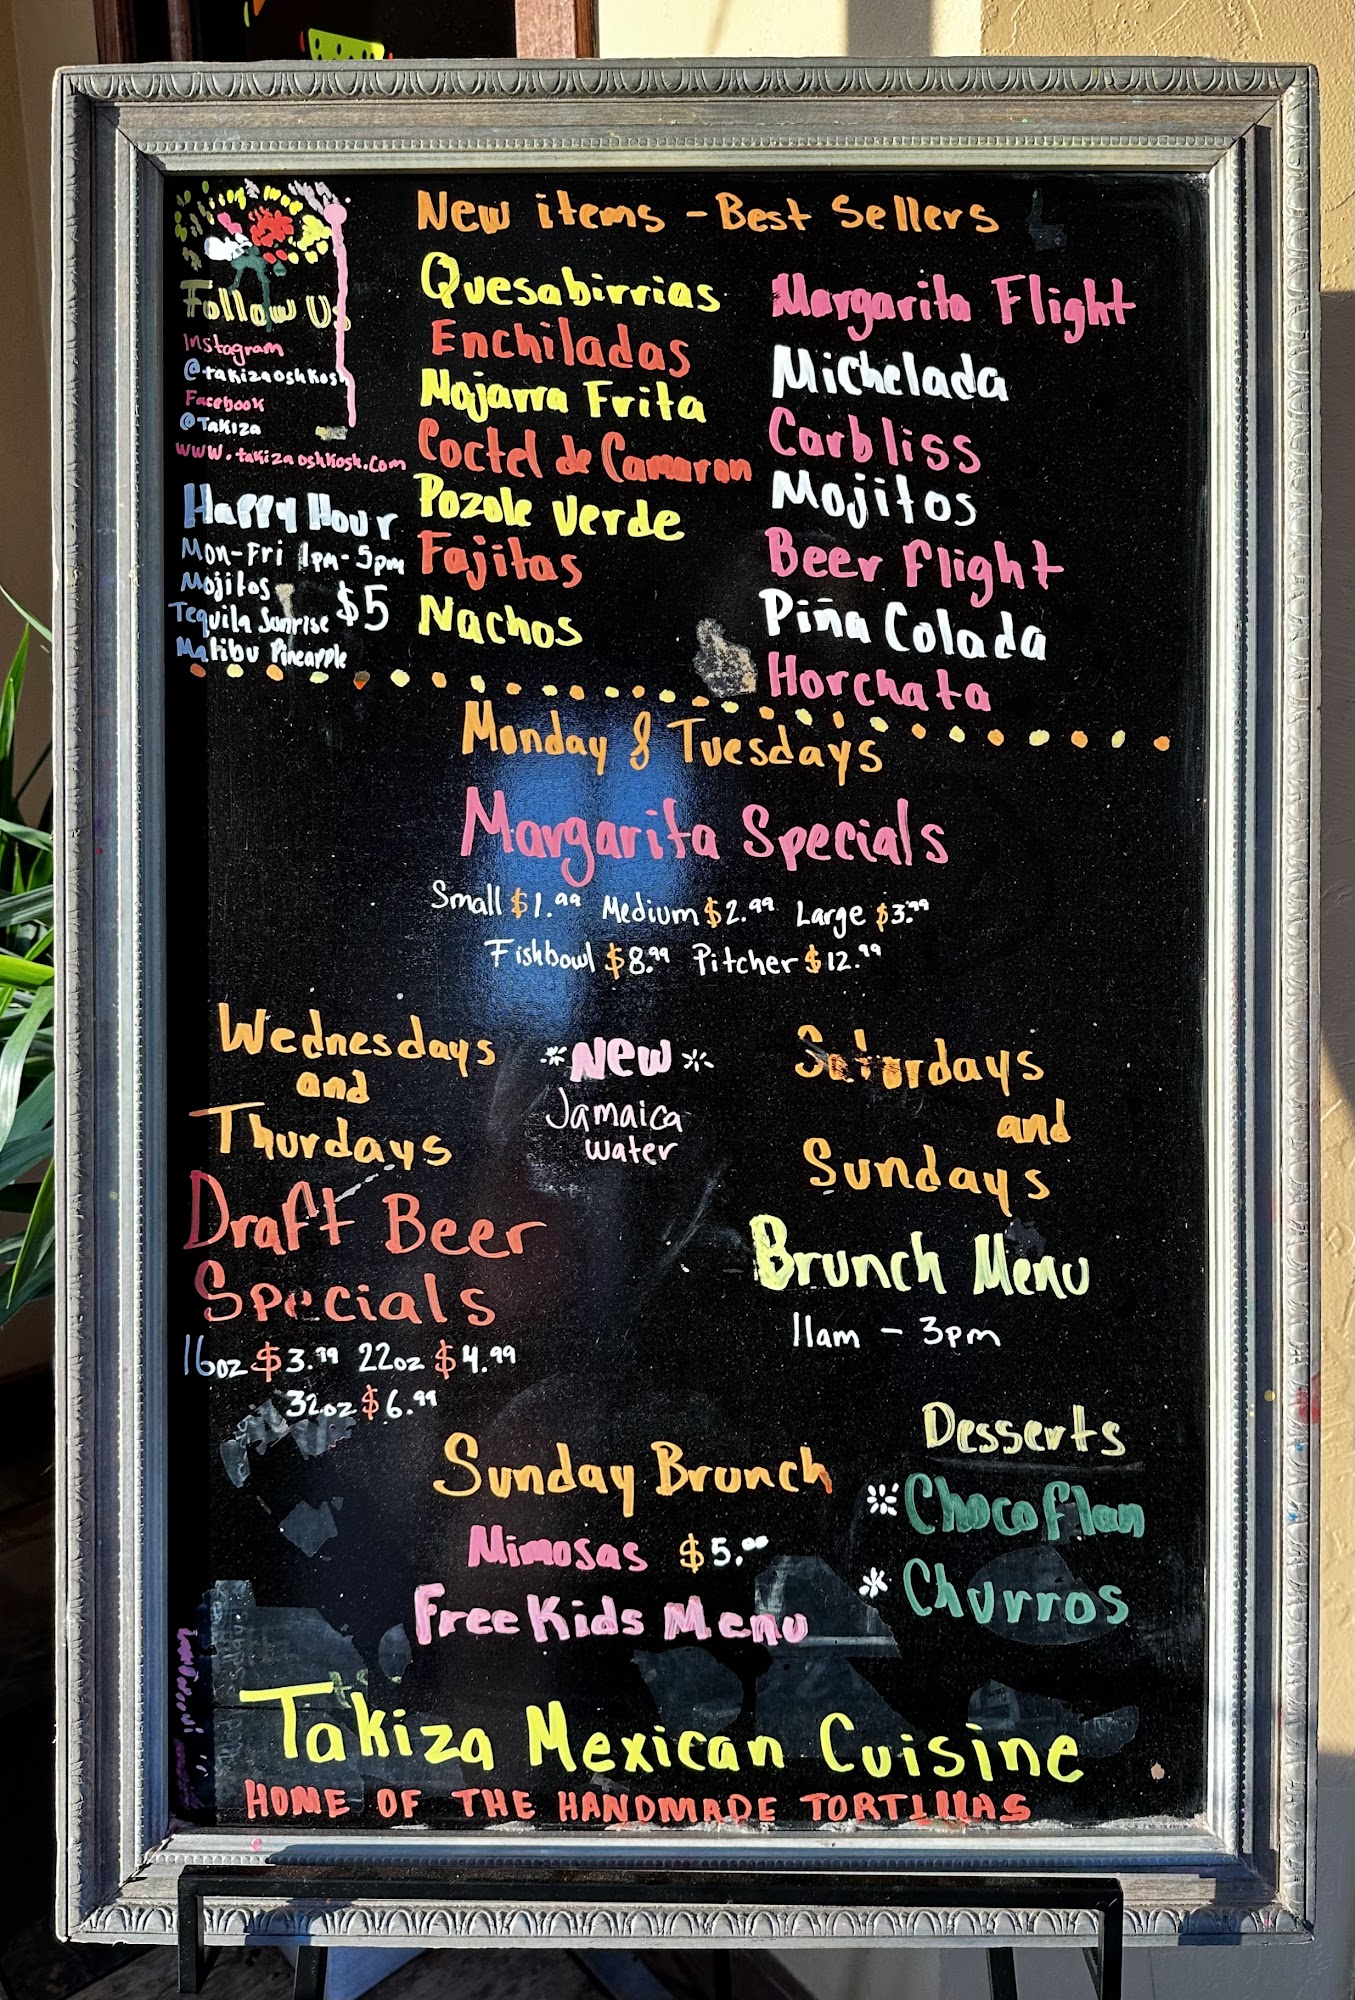 New items - Best Sellers
Follow Us
Instagram
@takizaoshkosh
Facebook
@Takiza
www.takizaoshkosh.com
Happy Hour
Mon-Fri 1pm-5pm
Mojitos
Tequila Sunrise $5
Malibu Pineapple
Quesabirrias
Enchiladas
Mojarra Frita
Coctel de Camaron
Pozole Verde
Fajitas
Nachos
Margarita Flight
Michelada
Carbliss
Mojitos
Beer Flight
Piña Colada
Horchata
Monday & Tuesdays
Margarita Specials
Small $1.99 Medium $2.99 Large $3.99
Fishbowl $8.99 Pitcher $12.99
Wednesdays
and
Thurdays
Draft Beer
Specials
16oz $3.99 22oz $4.99
32oz $6.99
*New*
Jamaica
water
Saturdays
and
Sundays
Brunch Menu
11am - 3pm
Sunday Brunch
Mimosas $5.00
Free Kids Menu
Desserts
* Choco flan
* Churros
Takiza Mexican Cuisine
HOME OF THE HANDMADE TORTILLAS